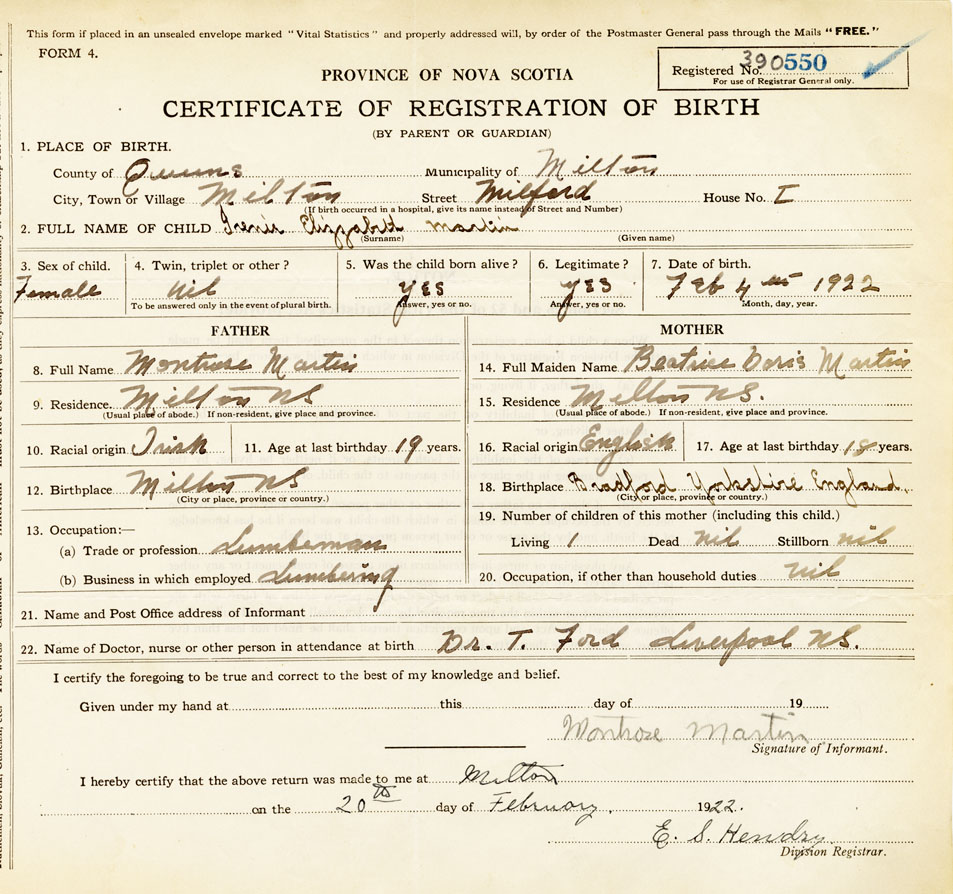 This form if placed in an unsealed envelope marked "Vital Statistics" and properly addressed will, by order of the Postmaster General pass through the Mails "FREE."
FORM 4.
Registered No. 390550
For use of Registrar General only.
PROVINCE OF NOVA SCOTIA
CERTIFICATE OF REGISTRATION OF BIRTH
(BY PARENT OR GUARDIAN)
1. PLACE OF BIRTH.
County of Queens Municipality of Milton
City, Town or Village Milton Street Milford House No. I
(If birth occurred in a hospital, give its name instead of Street and Number)
2. FULL NAME OF CHILD Irenir Elizzabeth Martin
(Surname) (Given name)
3. Sex of child. 4. Twin, triplet or other? 5. Was the child born alive? 6. Legitimate? 7. Date of birth.
Female nil YES YES Feb 4 1922
To be answered only in the event of plural birth. Answer, yes or no. Answer, yes or no. Month, day, year.
FATHER MOTHER
8. Full Name Montrose Martin 14. Full Maiden Name Beatrice Doris Martin
9. Residence. Milton NS 15. Residence Milton NS.
(Usual place of abode.) If non-resident, give place and province. (Usual place of abode.) If non-resident, give place and province.
10. Racial origin Irish 11. Age at last birthday 19 years. 16. Racial origin English 17. Age at last birthday years.
12. Birthplace Milton NS 18. Birthplace Bradford Yorkshire England.
(City or place, province or country.) (City or place, province or country.)
13. Occupation:— 19. Number of children of this mother (including this child.)
(a) Trade or profession Lumbeman Living 1 Dead nil Stillborn nil
(b) Business in which employed Lumbering 20. Occupation, if other than household duties nil
21. Name and Post Office address of Informant
22. Name of Doctor, nurse or other person in attendance at birth Dr. T. Ford Liverpool NS.
I certify the foregoing to be true and correct to the best of my knowledge and belief.
Given under my hand at this day of 19
Montrose Martin
Signature of Informant.
I hereby certify that the above return was made to me at Milton
on the 20th day of February. 1922.
E. S. Hendry
Division Registrar.